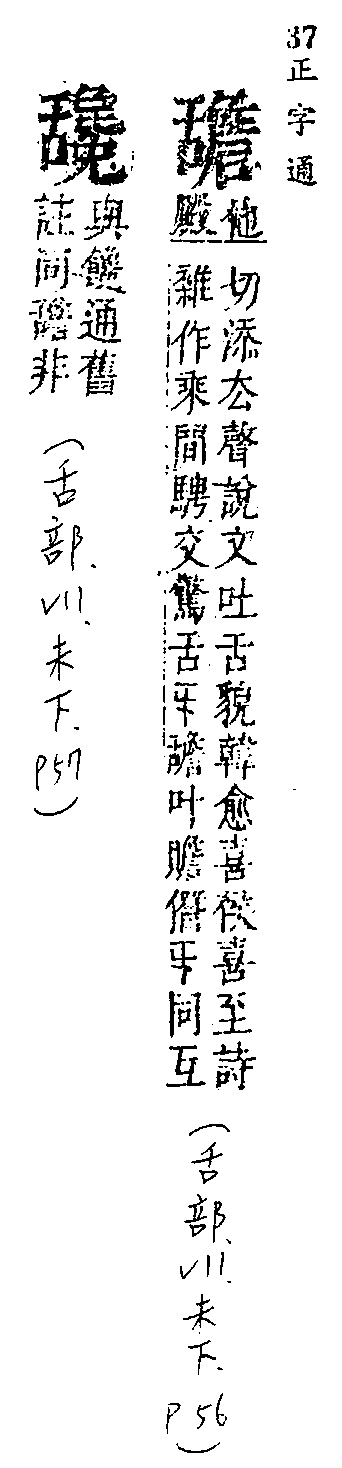 37 正字通
𦧴
他豔切添厺聲說文吐舌貌韓愈喜侯喜至詩
雜作乘間騁交驚舌㸦𦧴叶贍僭㸦同互
（舌部、VII、未下、P56）
與饞通舊
註同𦧴非
（舌部、VII、未下、P57）